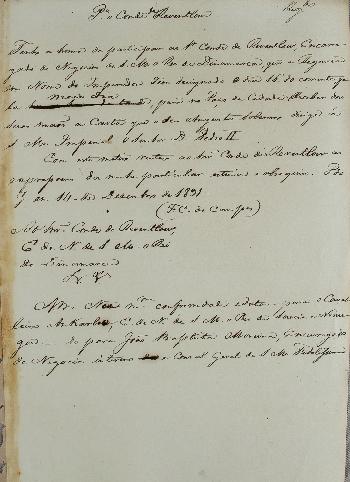 Pa. o Conde de Reventlow
Tenho a honra de participar ao Sr. Conde de Reventlow, Encarre
gado de Negocios de S. M. o Rei de Dinamarca, que a Regencia
em Nome do Imperador tem designado o dia 16 do corrente, pe
lo meio dia, para no Paço da Cidade receber das
suas mãos a Carta que o seu Augusto Soberano dirigio a
S. M. Imperial o Senhor D. Pedro II
Com este motivo reitero ao Sr. Conde de Reventlow as
expressoens da minha particular estima e obsequio. Pa
ço em 14 de Dezembro de 1831
Ao Snr. Conde de Reventlow,
E. de N. de S. M. o Rei
de Dinamarca
N. conformidade e data para o Caval
leiro E. de N. de S. M. o Rei da Suecia e Norue
ga. do para João Baptista Moreira, Encarregado
de Negocios interino e Consul Geral de S. M. Fidelissima